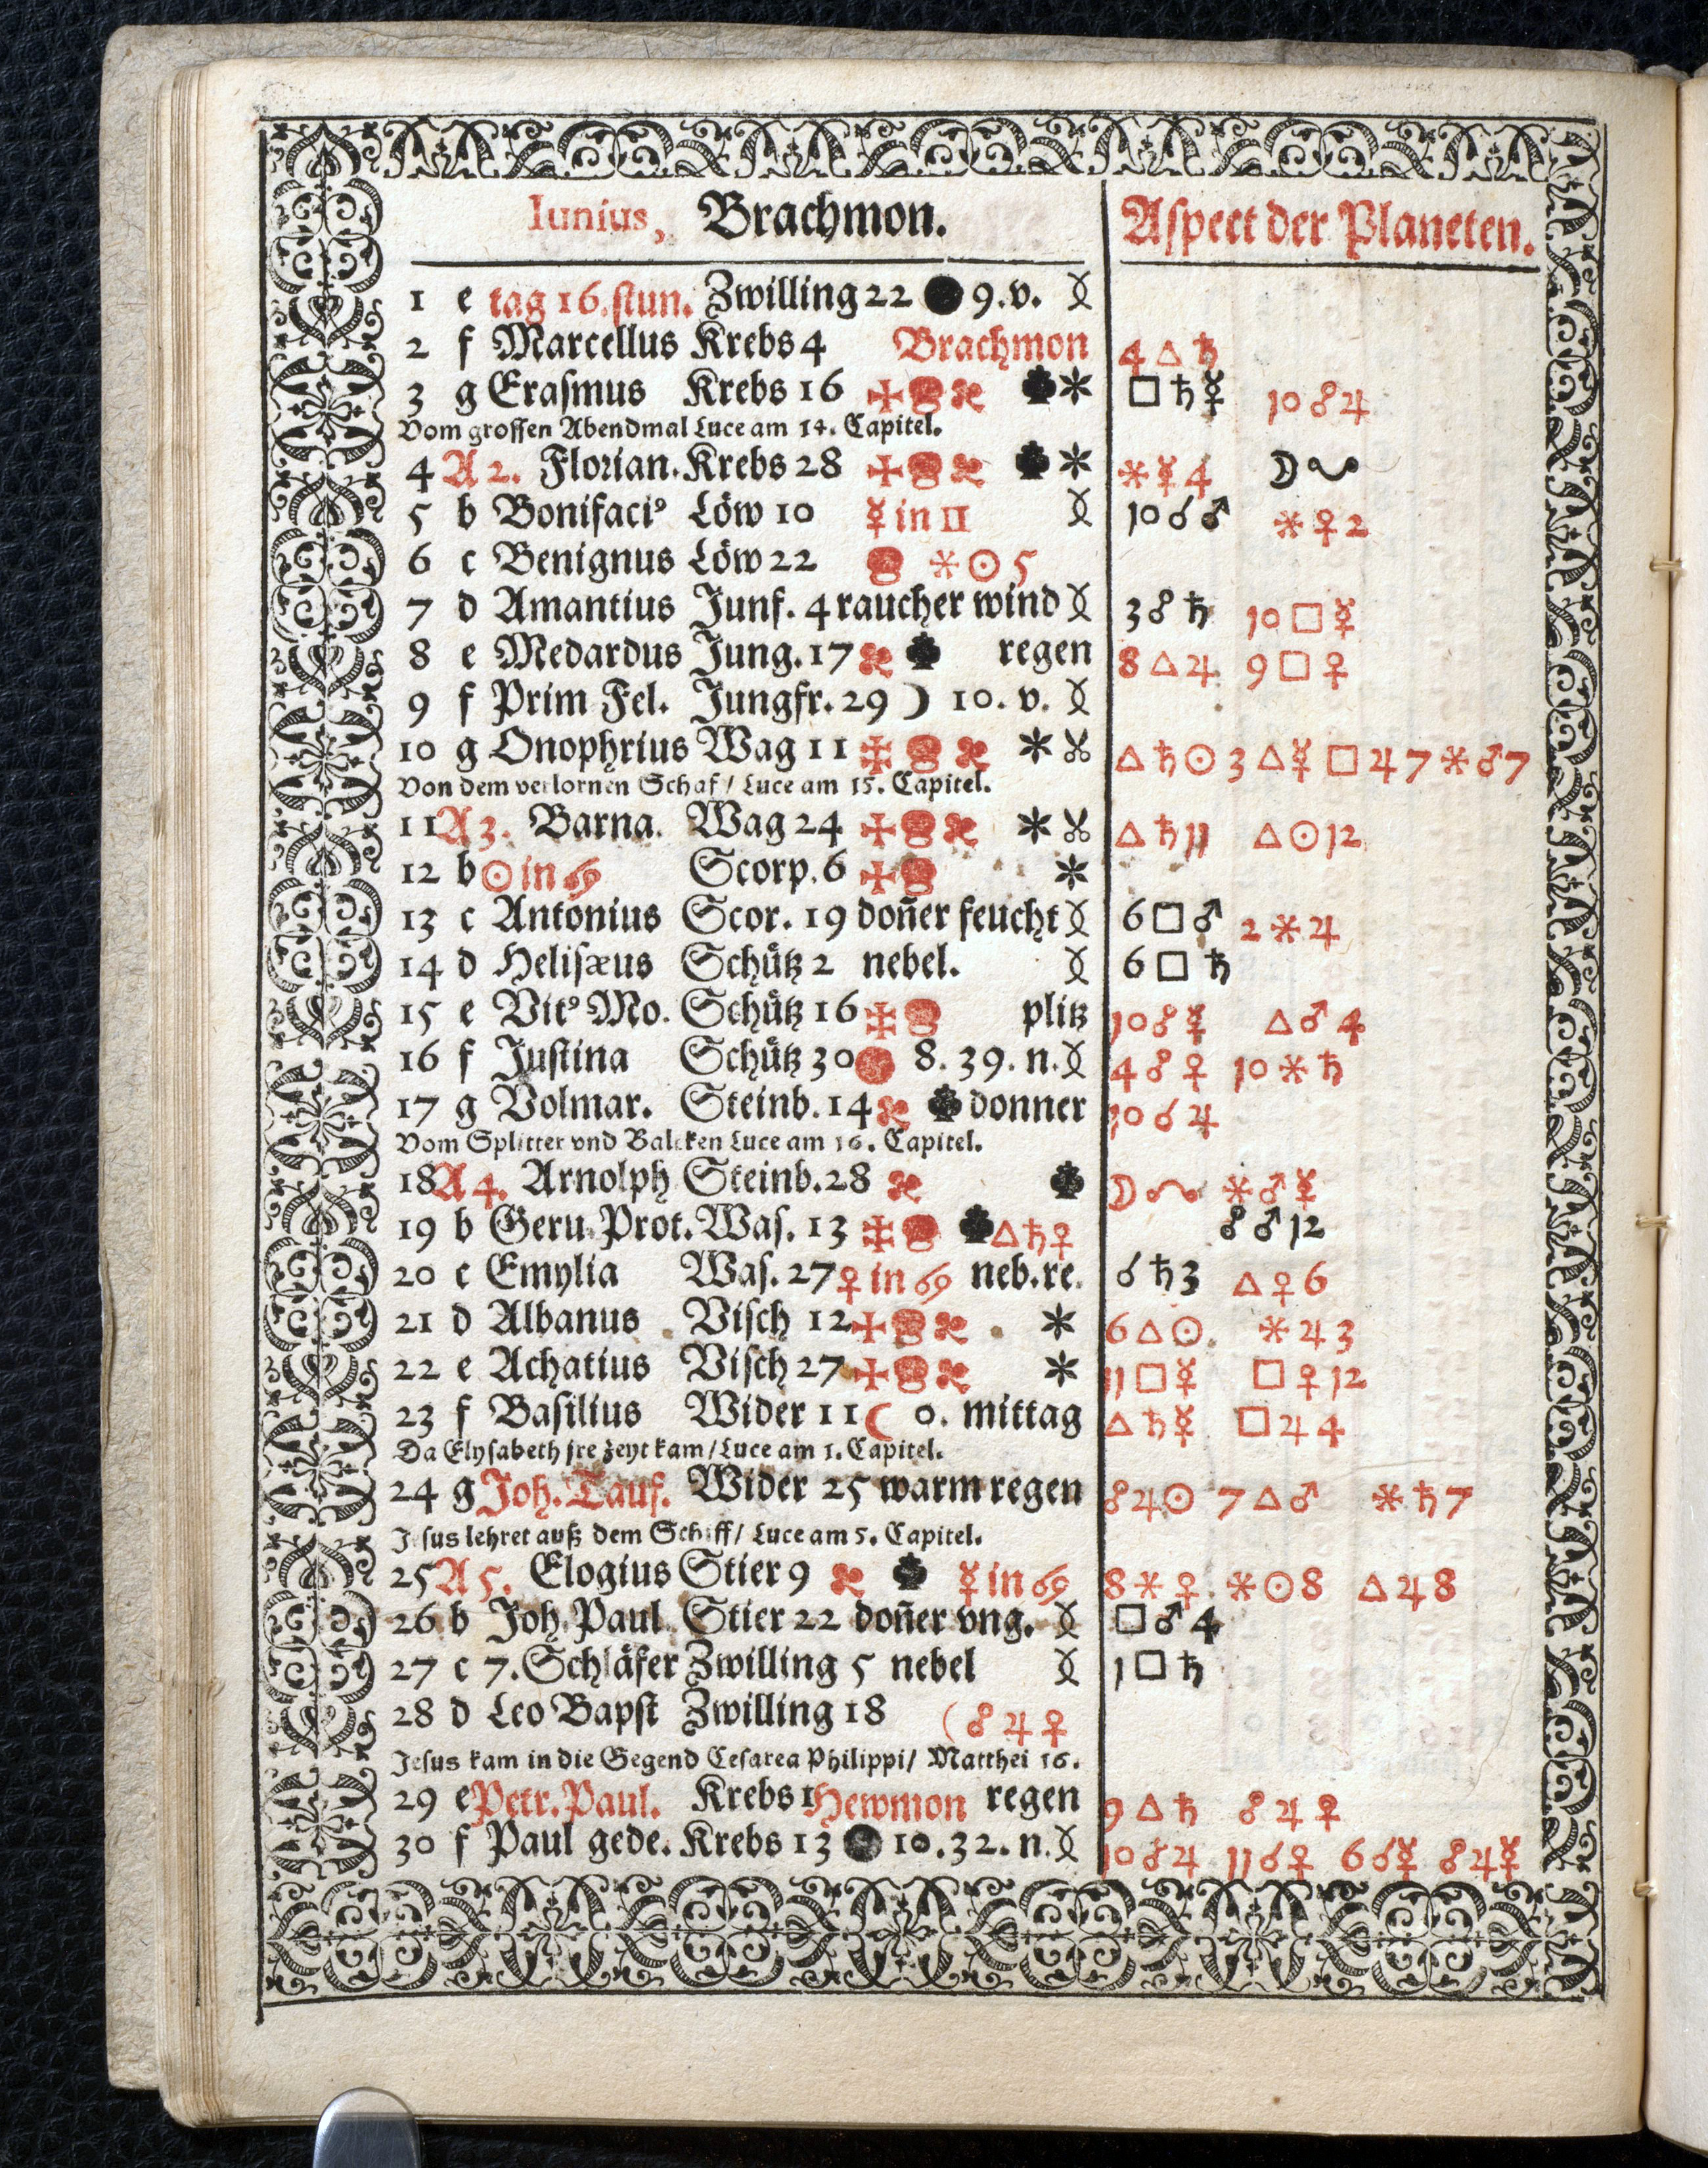 Iunius, Brachmon.
Aspect der Planeten.
1 e tag 16. stun. Zwilling 22 ● 9. v.
2 f Marcellus Krebs 4 Brachmon 4 △ ♄
3 g Erasmus Krebs 16 □ ♄ ☿ 10 ☍ ♃
Vom grossen Abendmal Luce am 14. Capitel.
4 A 2. Florian. Krebs 28 ⚹ ☿ 4 ☽
5 b Bonifaciꝰ Löw 10 ☿ in ♊ 10 ☌ ♂ ⚹ ♀ 2
6 c Benignus Löw 22 ⚹ ☉ 5
7 d Amantius Junf. 4 raucher wind 3 ☍ ♄ 10 □ ☿
8 e Medardus Jung. 17 regen 8 △ ♃ 9 □ ♀
9 f Prim Fel. Jungfr. 29 ☽ 10. v.
10 g Onophrius Wag 11 △ ♄ ☉ 3 △ ☿ □ ♃ 7 ⚹ ♂ 7
Von dem verlornen Schaf / Luce am 15. Capitel.
11 A 3. Barna. Wag 24 △ ♄ 11 △ ☉ 12
12 b ☉ in ♋ Scorp. 6
13 c Antonius Scor. 19 doñer feucht 6 □ ♂ 2 ⚹ ♃
14 d Helisæus Schütz 2 nebel. 6 □ ♄
15 e Vitꝰ Mo. Schütz 16 plitz 10 ☍ ☿ △ ♂ 4
16 f Justina Schütz 30 8. 39. n. 4 ☍ ♀ 10 ⚹ ♄
17 g Volmar. Steinb. 14 donner 10 ☌ ♃
Vom Splitter vnd Balcken Luce am 16. Capitel.
18 A 4. Arnolph Steinb. 28 ☽ ⚹ ♂ ☿
19 b Geru. Prot. Was. 13 △ ♄ ♀ ☍ ♂ 12
20 c Emylia Was. 27 ♀ in ♋ neb. re. ☌ ♄ 3 △ ♀ 6
21 d Albanus Visch 12 6 △ ☉ ⚹ ♃ 3
22 e Achatius Visch 27 11 □ ☿ □ ♀ 12
23 f Basilius Wider 11 ☾ 0. mittag △ ♄ ☿ □ ♃ 4
Da Elysabeth jre zeyt kam / Luce am 1. Capitel.
24 g Joh. Tauf. Wider 25 warm regen ☍ ♃ ☉ 7 △ ♂ ⚹ ♄ 7
Jesus lehret auß dem Schiff / Luce am 5. Capitel.
25 A 5. Elogius Stier 9 ☿ in ♋ 8 ⚹ ♀ ⚹ ☉ 8 △ ♃ 8
26 b Joh. Paul. Stier 22 doñer vng. □ ♂ 4
27 c 7. Schläfer Zwilling 5 nebel 1 □ ♄
28 d Leo Bapst Zwilling 18 ( ☍ ♃ ♀
Jesus kam in die Gegend Cesarea Philippi / Matthei 16.
29 e Petr. Paul. Krebs 1 Hewmon regen 9 △ ♄ ☍ ♃ ♀
30 f Paul gede. Krebs 13 ● 10. 32. n. 10 ☍ ♃ 11 ☌ ♀ 6 ☌ ☿ ☍ ♃ ☿